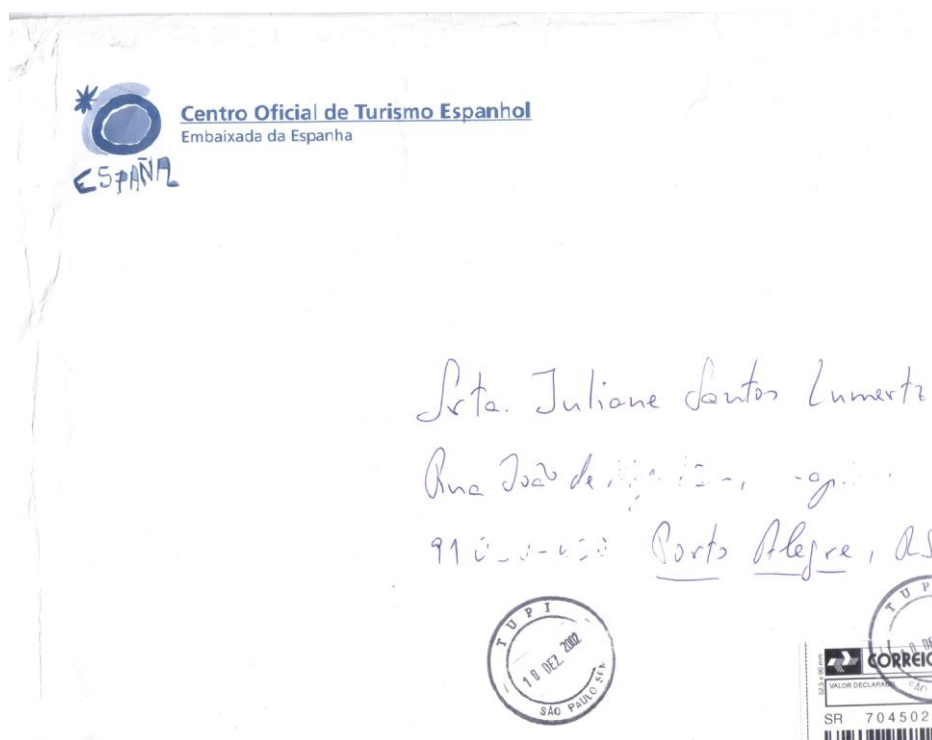 Centro Oficial de Turismo Espanhol
Embaixada da Espanha
ESPAÑA
Srta. Juliane Santos Lumertz
Rua João de
Porto Alegre, RS
TUPI
18 DEZ 2002
SÃO PAULO
TUP
CORREIO
VALOR DECLARADO
SR 704502